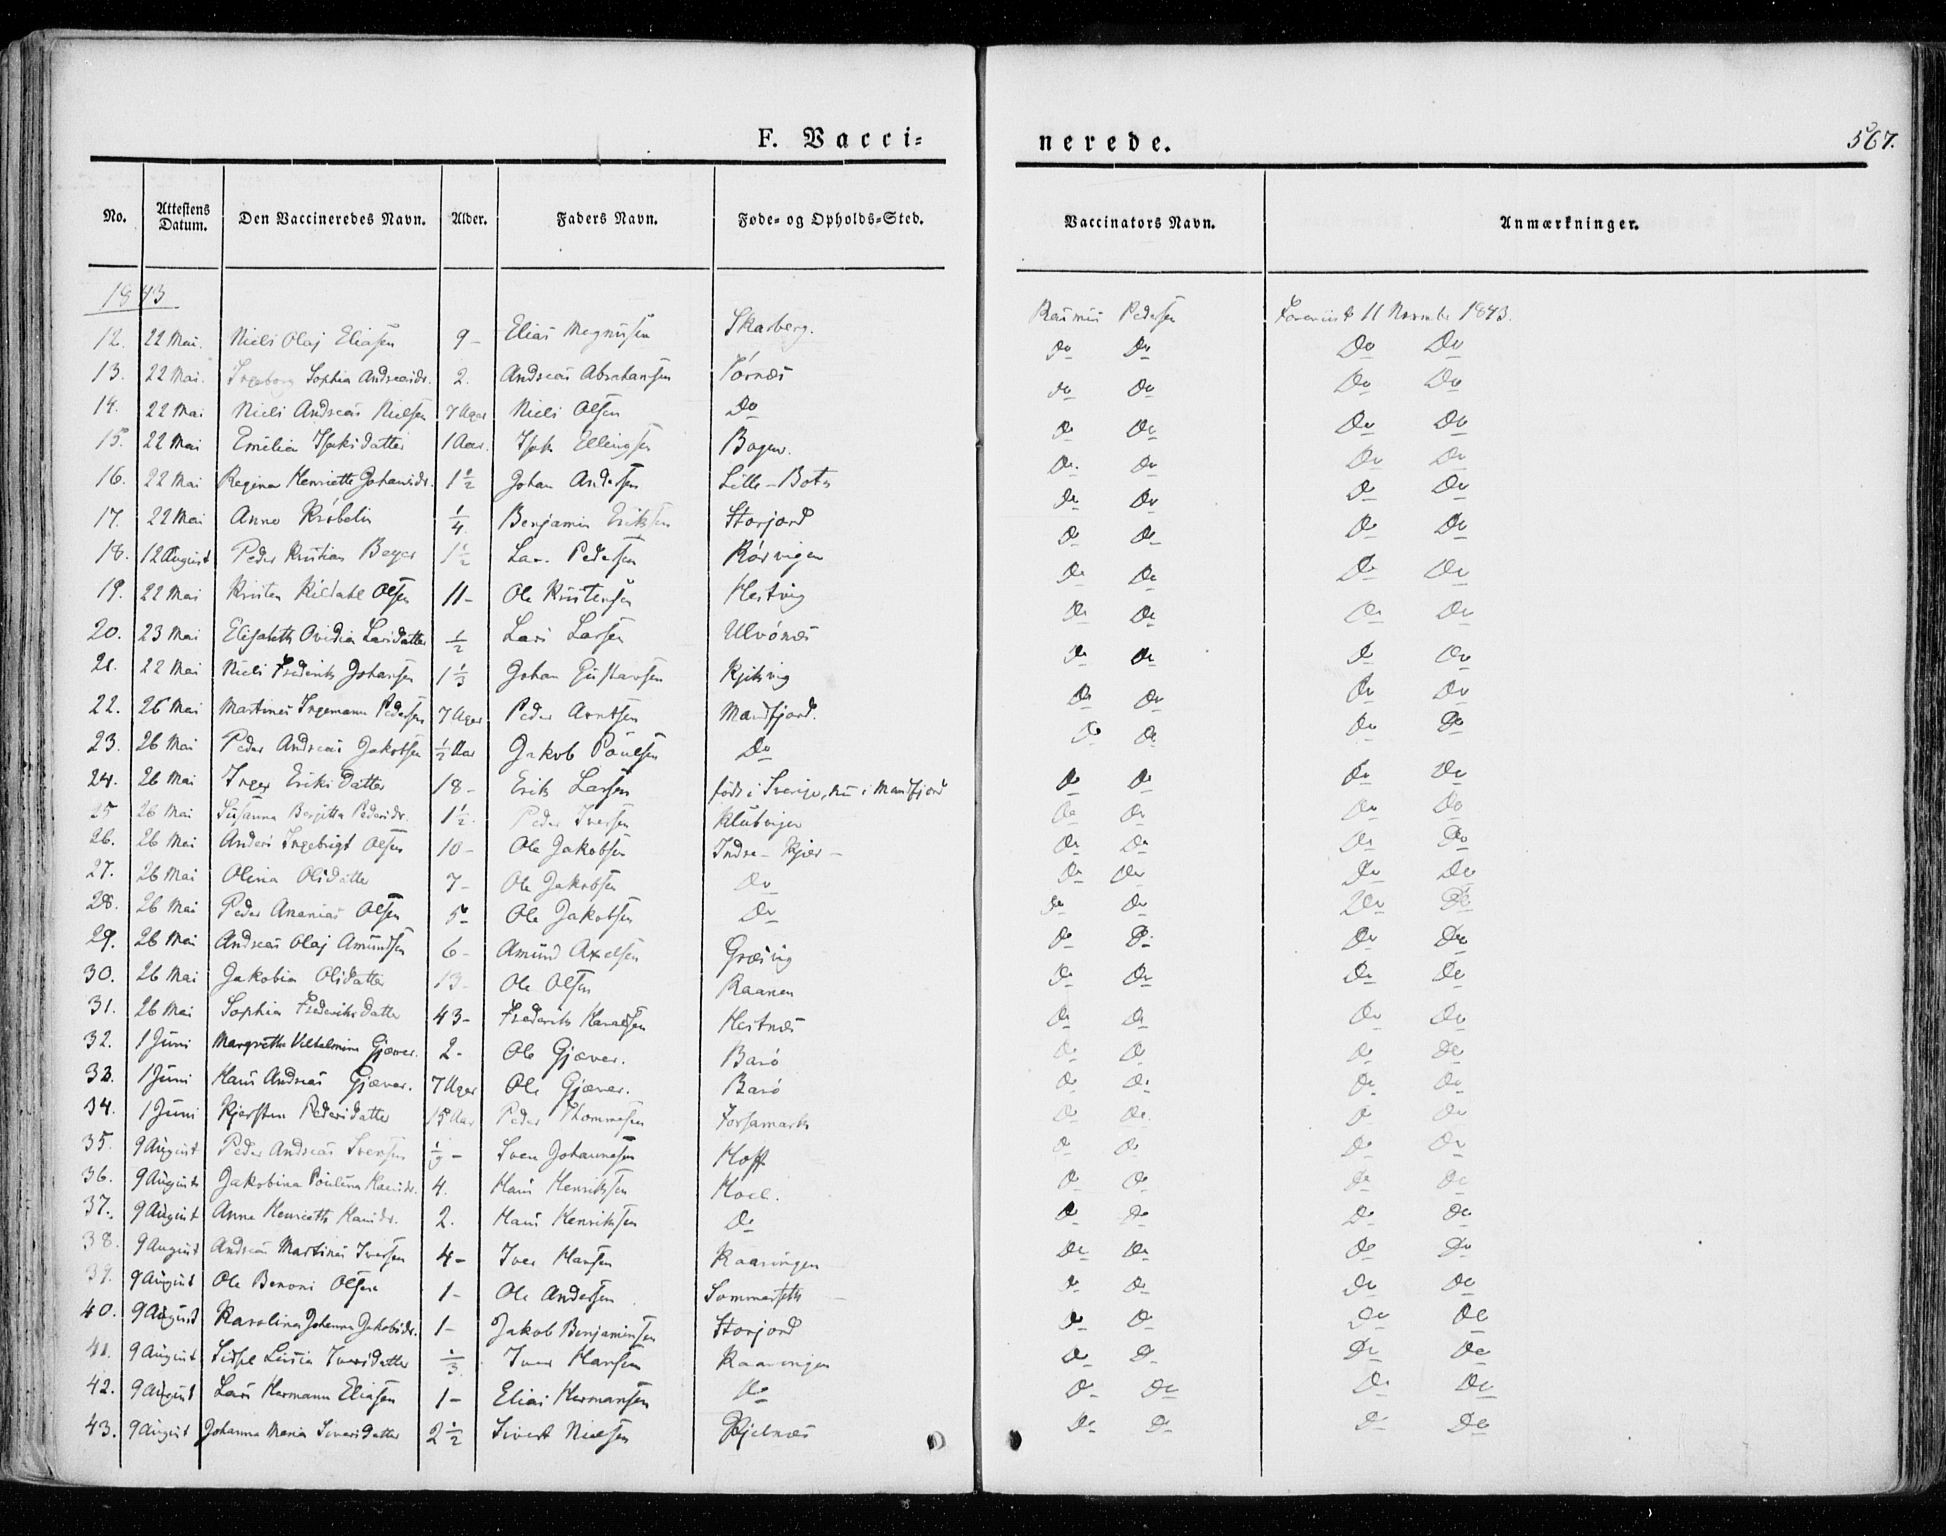 F. Vacci=
nerede.
567.
No. Attestens Datum. Den Vaccineredes Navn. Alder. Faders Navn. Føde- og Opholds-Sted. Vaccinators Navn. Anmærkninger.
1843
12. 22 Mai. Niels Olaj Eliasen 9 - Elias Magnussen Skarberg. Rasmus Pedersen 11 Novembr 1843.
13. 22 Mai. Ingeborg Sophia Andreasdr. 2. Andreas Abrahamsen Do Do Do Do
14. 22 Mai Niels Andreas Nielsen 7 Uger Niels Olsen Do Do Do Do Do
15. 22 Mai Emilia Isaksdatter 1 Aar. Isak Ellingsen Bogen. Do Do Do Do
16. 22 Mai Regina Henriette Johansdr. 1 1/2 Johan Andersen Lille-Botn Do Do Do Do
17. 22 Mai Anne 1/4 Benjamin Eriksen Storjord Do Do Do Do
18. 12 August Peder Kristian Beyer 1 1/2 Lars Pedersen Rørvigen Do Do Do Do
19. 22 Mai Kristen Kildahl Olsen 11 - Ole Kristensen Hestvig Do Do Do Do
20. 23 Mai Elisabeth Ovidia Larsdatter 1/2 Lars Larsen Ulvønæs Do Do Do Do
21. 22 Mai Niels Frederik Johansen 1 1/3 Johan Gustavsen Do Do Do Do
22. 26 Mai Martines Ingemann Pedersen 7 Uger Peder Arntsen Mandfjord. Do Do Do Do
23. 26 Mai Peder Andreas Jakobsen 1/2 Aar Jakob Poulsen Do Do Do Do Do
24. 26 Mai Inger Eriksdatter 18 - Erik Larsen født i Sverige, nu i Mandfjord Do Do Do Do
25 26 Mai Susanna Bergitta Pedersdr. 1 1/2. Peder Iversen Klubvigen Do Do Do Do
26. 26 Mai Anders Ingebrigt Olsen 10 - Ole Jakobsen Indre - Kjær - Do Do Do Do
27. 26 Mai Olina Olsdatter 7 - Ole Jakobsen Do Do Do Do Do
28. 26 Mai Peder Ananias Olsen 5 - Ole Jakobsen Do Do Do Do Do
29. 26 Mai Andreas Olaj Amundsen 6 - Amund Axelsen Græsvig Do Do Do Do
30. 26 Mai Jakobia Olsdatter 13 - Ole Olsen Raanen Do Do Do Do
31. 26 Mai Sophia Frederiksdatter 43 - Frederik Haraldsen Hestnæs Do Do Do Do
32. 1 Juni Margrethe Vilhelmine Gjæver. 2 - Ole Gjæver. Barø Do Do Do Do
33. 1 Juni Hans Andreas Gjæver. 7 Uger Ole Gjæver. Barø Do Do Do Do
34. 1 Juni Kjersten Pedersdatter 15 Aar Peder Thommesen Forsamark Do Do Do Do
35. 9 August Peder Andreas Svensen Sven Johannesen Hoff Do Do Do Do
36. 9 August Jakobina Paulina Hansdr. 4. Hans Henriksen Hoel. Do Do Do Do
37. 9 August Anne Henriette Hansdr. 2. Hans Henriksen Do Do Do Do Do
38. 9 August Andreas Martines Iversen 4 - Iver Hansen Kaaringen Do Do Do Do
39. 9 August Ole Benoni Olsen 1 - Ole Andersen Sommerseth Do Do Do Do
40. 9 August Karolina Johanna Jakobsdr. 1 - Jakob Benjaminsen Storjord Do Do Do Do
41. 9 August Iversdatter 1/3 Iver Hansen Kaaringen Do Do Do Do
42. 9 August Lars Hermann Eliasen 1 - Elias Hermansen Do Do Do Do Do
43. 9 August Johanna Maria Sivertsdatter 2 1/2 Sivert Nielsen Do Do Do Do